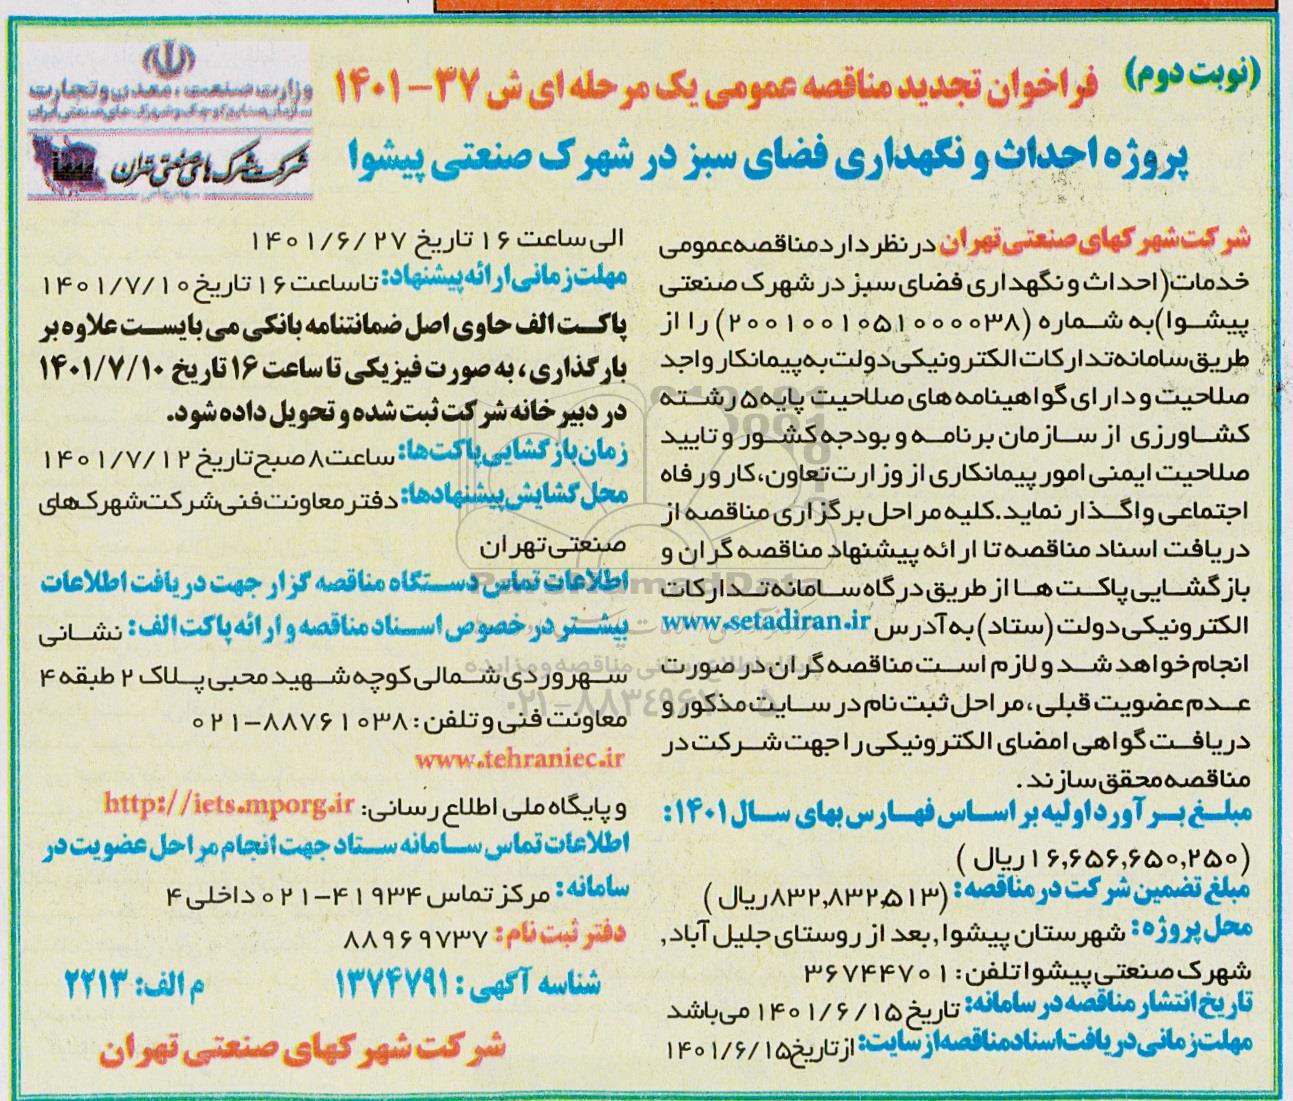 (نوبت دوم)
فراخوان تجدید مناقصه عمومی یک مرحله ای ش ۳۷-۱۴۰۱
پروژه احداث و نگهداری فضای سبز در شهرک صنعتی پیشوا
وزارت صنعت، معدن و تجارت
سازمان صنایع کوچک و شهرک های صنعتی ایران
شرکت شهرک های صنعتی تهران
شرکت شهرکهای صنعتی تهران در نظر دارد مناقصه عمومی
خدمات (احداث و نگهداری فضای سبز در شهرک صنعتی
پیشوا) به شماره (۲۰۰۱۰۰۱۰۵۱۰۰۰۰۳۸) را از
طریق سامانه تدارکات الکترونیکی دولت به پیمانکار واجد
صلاحیت و دارای گواهینامه های صلاحیت پایه ۵ رشته
کشاورزی از سازمان برنامه و بودجه کشور و تایید
صلاحیت ایمنی امور پیمانکاری از وزارت تعاون، کار و رفاه
اجتماعی واگذار نماید. کلیه مراحل برگزاری مناقصه از
دریافت اسناد مناقصه تا ارائه پیشنهاد مناقصه گران و
بازگشایی پاکت ها از طریق درگاه سامانه تدارکات
الکترونیکی دولت (ستاد) به آدرس www.setadiran.ir
انجام خواهد شد و لازم است مناقصه گران در صورت
عدم عضویت قبلی، مراحل ثبت نام در سایت مذکور و
دریافت گواهی امضای الکترونیکی را جهت شرکت در
مناقصه محقق سازند.
مبلغ برآورد اولیه بر اساس فهارس بهای سال ۱۴۰۱:
(۱۶,۶۵۶,۶۵۰,۲۵۰ ریال)
مبلغ تضمین شرکت در مناقصه: (۸۳۲,۸۳۲,۵۱۳ ریال)
محل پروژه: شهرستان پیشوا, بعد از روستای جلیل آباد,
شهرک صنعتی پیشوا تلفن: ۳۶۷۴۴۷۰۱
تاریخ انتشار مناقصه در سامانه: تاریخ ۱۴۰۱/۶/۱۵ می باشد
مهلت زمانی دریافت اسناد مناقصه از سایت: از تاریخ ۱۴۰۱/۶/۱۵
الی ساعت ۱۶ تاریخ ۱۴۰۱/۶/۲۷
مهلت زمانی ارائه پیشنهاد: تا ساعت ۱۶ تاریخ ۱۴۰۱/۷/۱۰
پاکت الف حاوی اصل ضمانتنامه بانکی می بایست علاوه بر
بارگذاری، به صورت فیزیکی تا ساعت ۱۶ تاریخ ۱۴۰۱/۷/۱۰
در دبیرخانه شرکت ثبت شده و تحویل داده شود.
زمان بازگشایی پاکت ها: ساعت ۸ صبح تاریخ ۱۴۰۱/۷/۱۲
محل گشایش پیشنهادها: دفتر معاونت فنی شرکت شهرک های
صنعتی تهران
اطلاعات تماس دستگاه مناقصه گزار جهت دریافت اطلاعات
بیشتر در خصوص اسناد مناقصه و ارائه پاکت الف: نشانی
سهروردی شمالی کوچه شهید محبی پلاک ۲ طبقه ۴
معاونت فنی و تلفن: ۸۸۷۶۱۰۳۸-۰۲۱
www.tehraniec.ir
و پایگاه ملی اطلاع رسانی: http://iets.mporg.ir
اطلاعات تماس سامانه ستاد جهت انجام مراحل عضویت در
سامانه: مرکز تماس ۴۱۹۳۴-۰۲۱ داخلی ۴
دفتر ثبت نام: ۸۸۹۶۹۷۳۷
شناسه آگهی: ۱۳۷۴۷۹۱ م الف: ۲۲۱۳
شرکت شهرکهای صنعتی تهران
ParsNamadData
پایگاه اطلاع رسانی مناقصه و مزایده